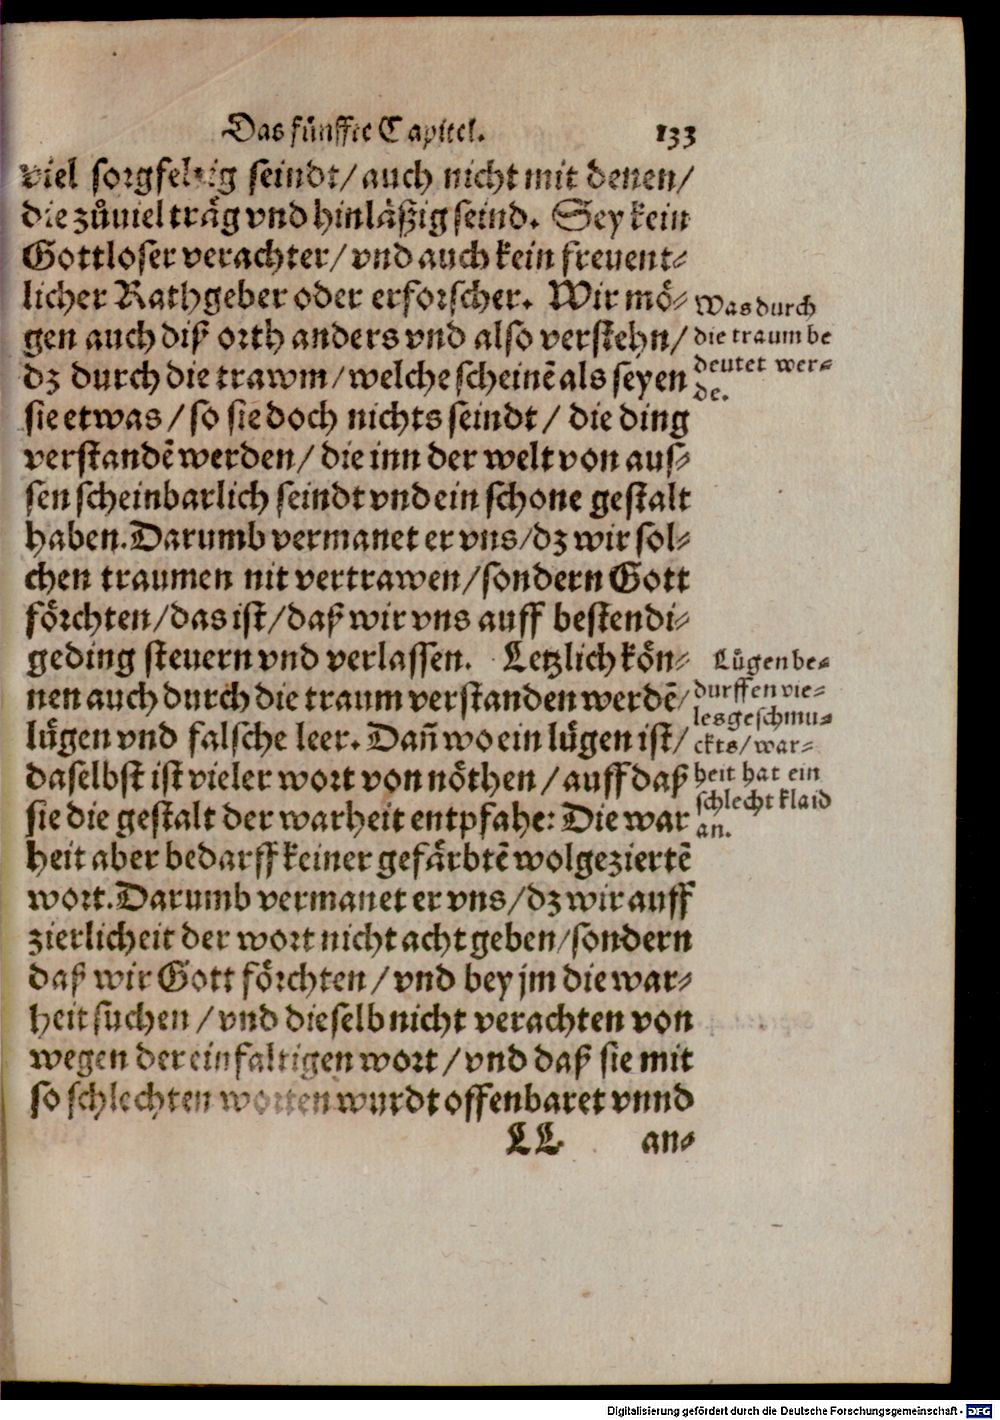 Das fünffte Capitel. 133
viel sorgfeltig seindt/auch nicht mit denen/
die zůuiel träg vnd hinläßig seind. Sey kein
Gottloser verachter/vnd auch kein freuent-
licher Rathgeber oder erforscher. Wir mö-
gen auch diß orth anders vnd also verstehn/
dz durch die trawm/welche scheinē als seyen
sie etwas/so sie doch nichts seindt/ die ding
verstandē werden/ die inn der welt von aus-
sen scheinbarlich seindt vnd ein schone gestalt
haben. Darumb vermanet er vns/dz wir sol-
chen traumen nit vertrawen/sondern Gott
förchten/das ist/daß wir vns auff bestendi-
ge ding steuern vnd verlassen. Letzlich kön-
nen auch durch die traum verstanden werdē/
lügen vnd falsche leer. Dañ wo ein lügen ist/
daselbst ist vieler wort von nöthen/auff daß
sie die gestalt der warheit entpfahe: Die war
heit aber bedarff keiner gefärbtē wolgeziertē
wort. Darumb vermanet er vns/dz wir auff
zierlicheit der wort nicht acht geben/sondern
daß wir Gott förchten/vnd bey jm die war-
heit suchen/vnd dieselb nicht verachten von
wegen der einfaltigen wort/vnd daß sie mit
so schlechten worten wurdt offenbaret vnnd
LL an-
Was durch
die traum be
deutet wer-
de.
Lügen be-
durffen vie-
les geschmu-
ckts/war-
heit hat ein
schlecht klaid
an.
Digitalisierung gefördert durch die Deutsche Forschungsgemeinschaft - DFG